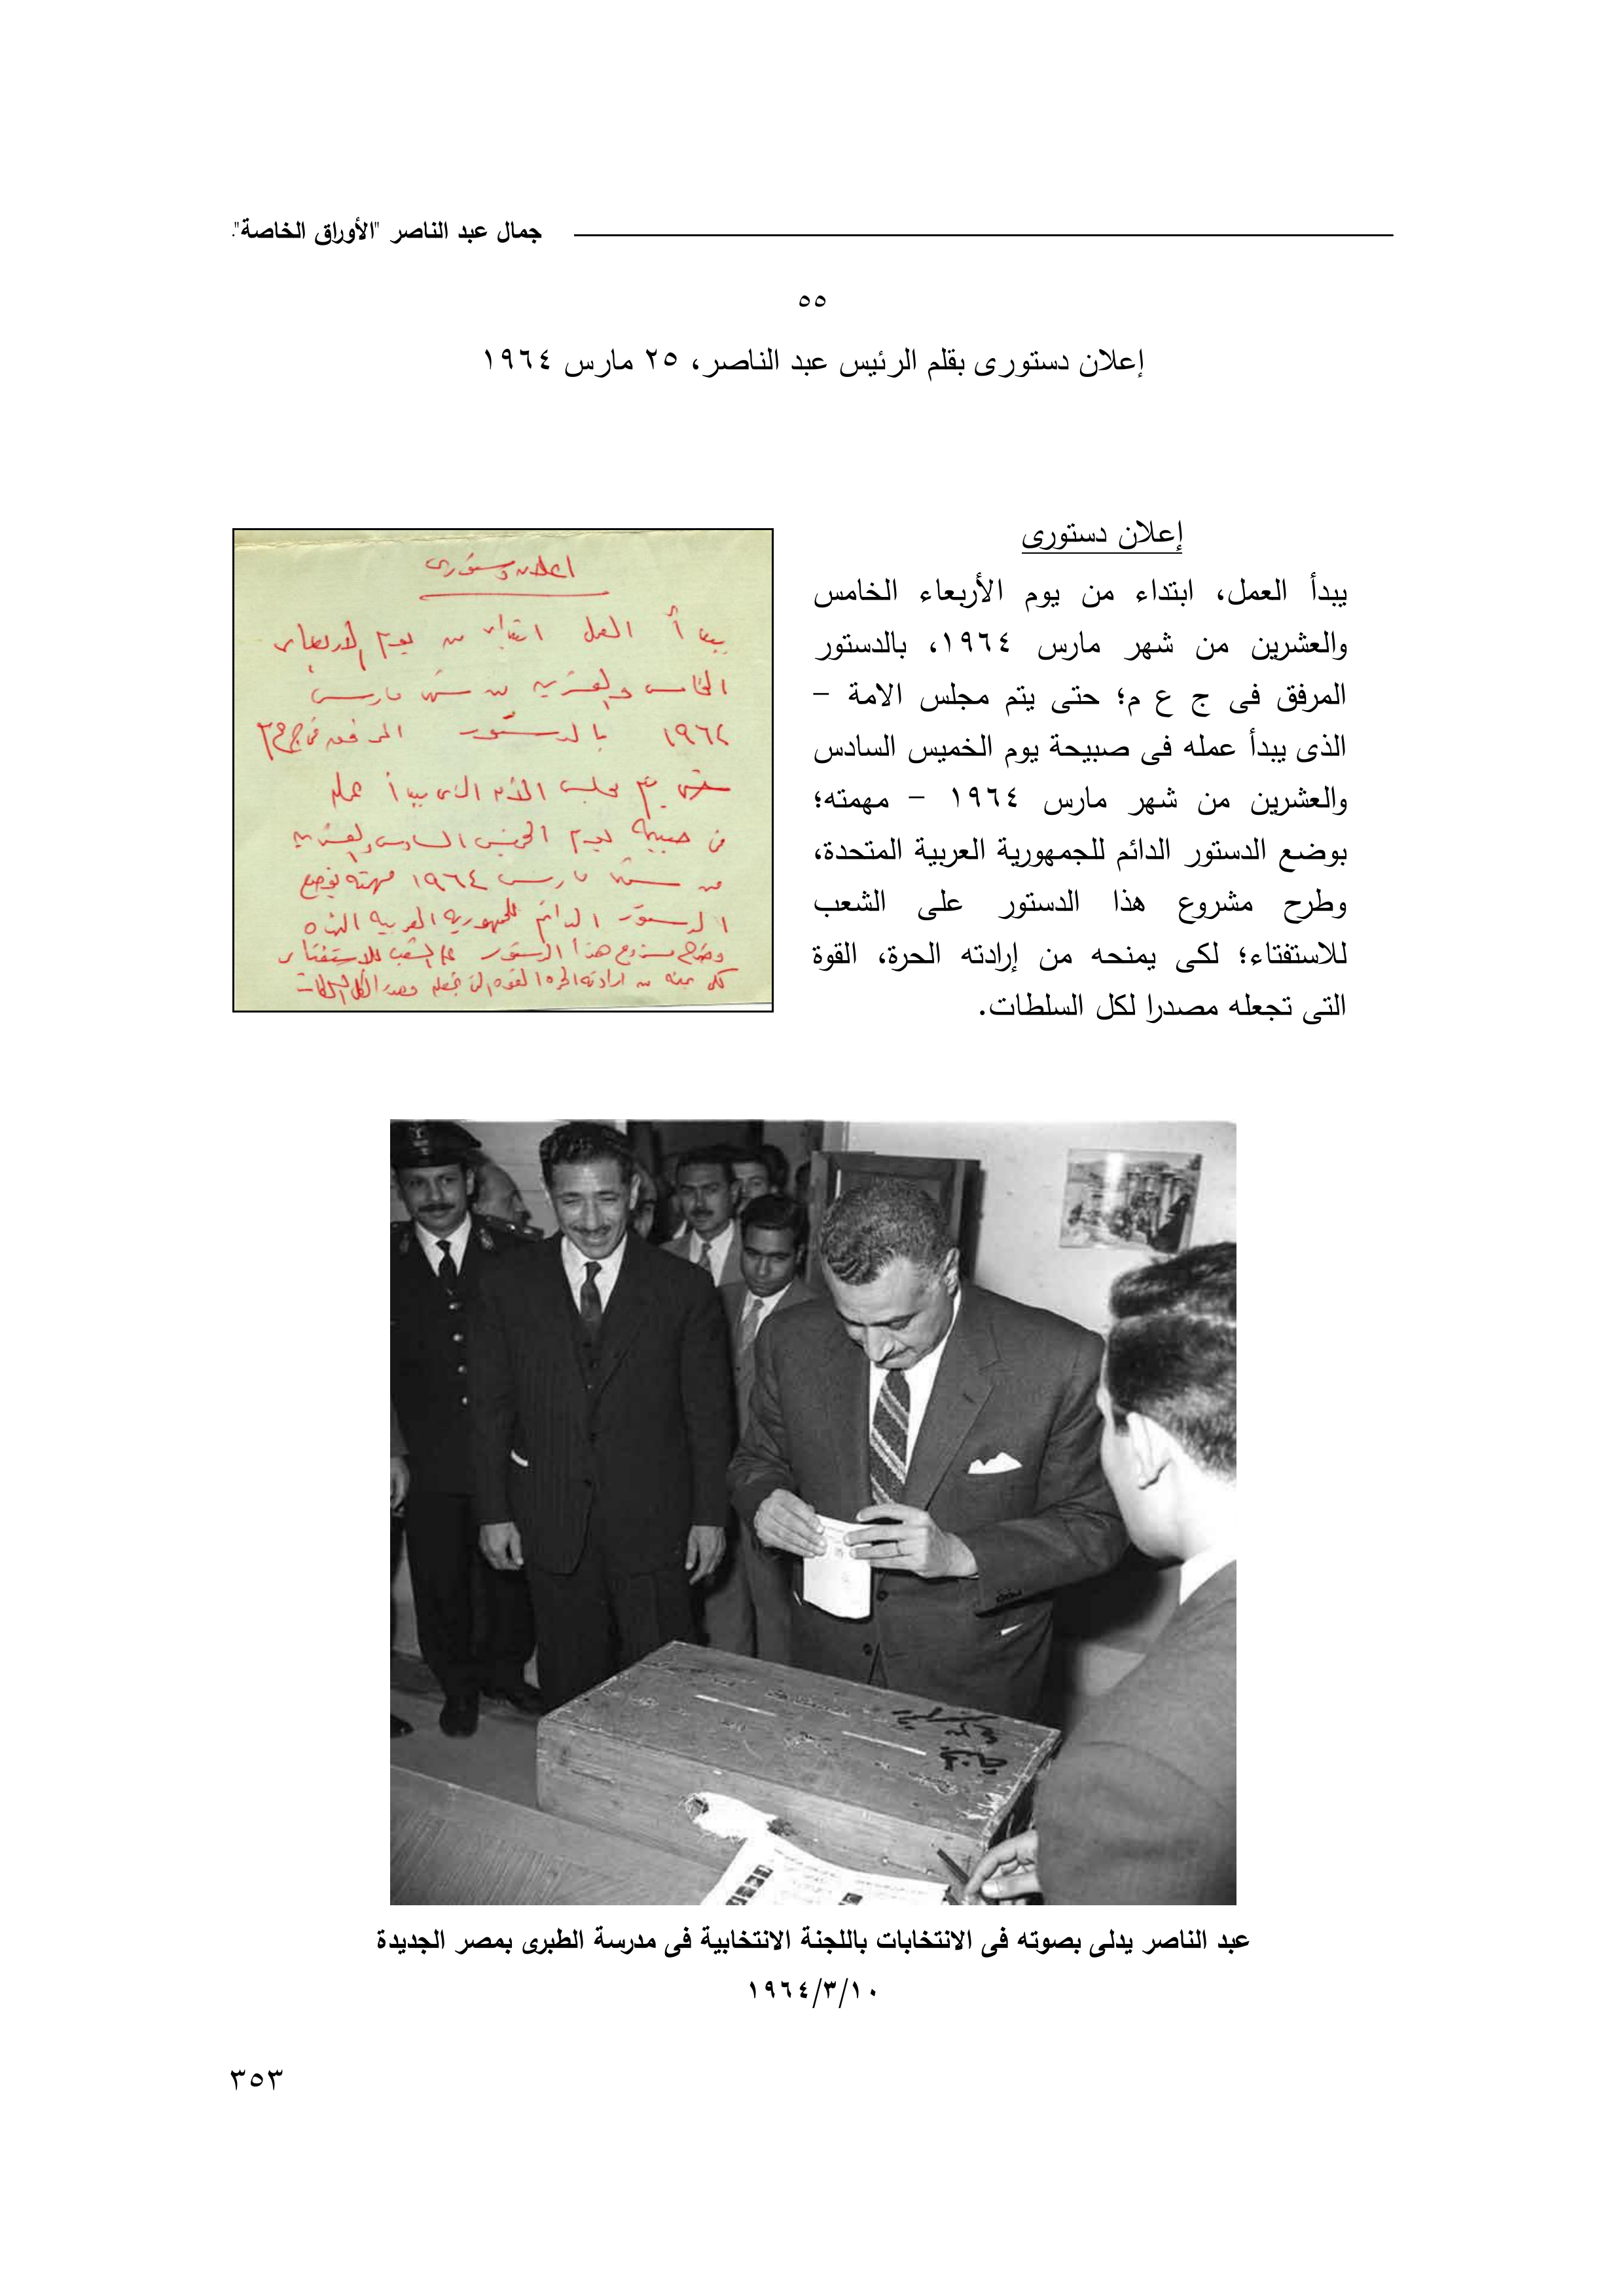 جمال عبد الناصر "الأوراق الخاصة".
٥٥
إعلان دستورى بقلم الرئيس عبد الناصر، ٢٥ مارس ١٩٦٤
إعلان دستورى
يبدأ العمل، ابتداء من يوم الأربعاء الخامس
والعشرين من شهر مارس ١٩٦٤، بالدستور
المرفق فى ج ع م؛ حتى يتم مجلس الامة –
الذى يبدأ عمله فى صبيحة يوم الخميس السادس
والعشرين من شهر مارس ١٩٦٤ – مهمته؛
بوضع الدستور الدائم للجمهورية العربية المتحدة،
وطرح مشروع هذا الدستور على الشعب
للاستفتاء؛ لكى يمنحه من إرادته الحرة، القوة
التى تجعله مصدرا لكل السلطات.
اعلان دستورى
يبدأ العمل ابتداء من يوم الاربعاء
الخامس والعشرين من شهر مارس
١٩٦٤ بالدستور المرفق فى ج ع م
حتى يتم مجلس الامه الذى يبدأ عمله
فى صبيحة يوم الخميس السادس والعشرين
من شهر مارس ١٩٦٤ مهمته بوضع
الدستور الدائم للجمهورية العربيه المتحده
وطرح مشروع هذا الدستور على الشعب للاستفتاء
لكى يمنحه من ارادته الحره القوه التى تجعله مصدرا لكل السلطات
عبد الناصر يدلى بصوته فى الانتخابات باللجنة الانتخابية فى مدرسة الطبرى بمصر الجديدة
١٩٦٤/٣/١٠
٣٥٣